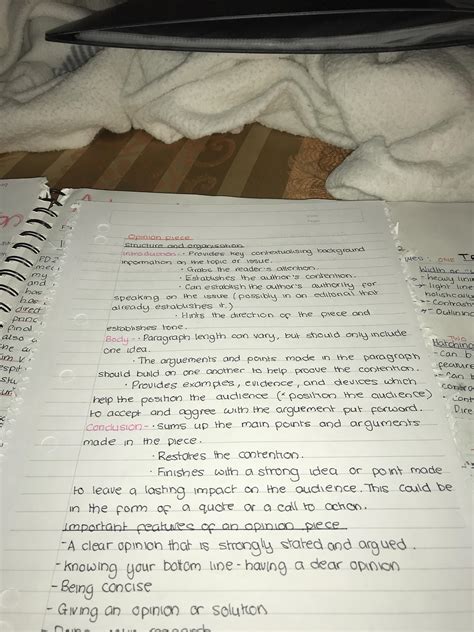 Opinion piece
Structure and organisation
Introduction -· Provides key contextualising background
information on the topic or issue.
· Grabs the reader's attention.
· Establishes the author's contention.
· Can establish the author's authority for
speaking on the issue (possibly in an editorial that
already establishes it.)
· Hints the direction of the piece and
establishes tone.
Body -· Paragraph length can vary, but should only include
one idea.
· The arguements and points made in the paragraph
should build on one another to help prove the contention.
· Provides examples, evidence, and devices which
help the position the audience (* position the audience)
to accept and aggree with the arguement put forward.
Conclusion -· Sums up the main points and arguments
made in the piece.
· Restates the contention.
· Finishes with a strong idea or point made
to leave a lasting impact on the audience. This could be
in the form of a quote or a call to action.
Important features of an opinion piece
- A clear opinion that is strongly stated and argued.
- Knowing your bottom line - having a clear opinion
- Being concise
- Giving an opinion or solution